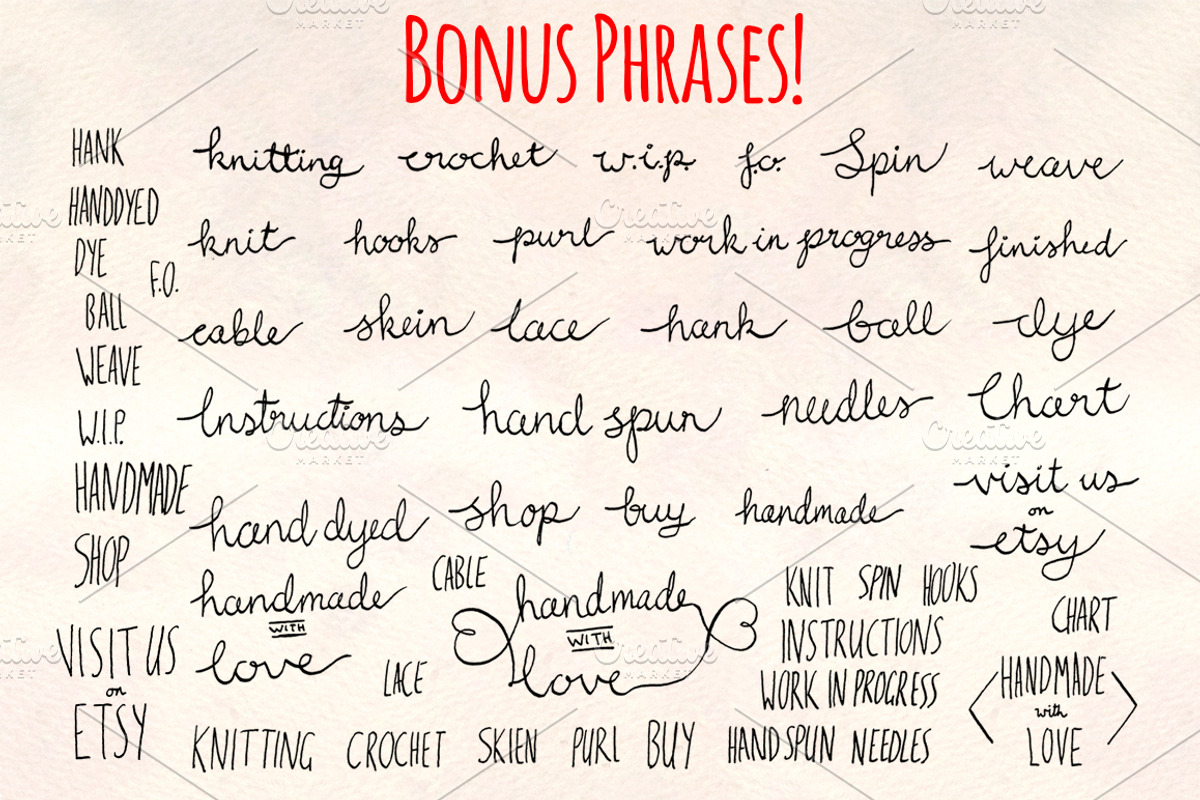 BONUS PHRASES!
HANK
knitting crochet w.i.p. f.o. Spin weave
HANDDYED
knit hooks purl work in progress finished
DYE
F.O.
BALL
cable skein lace hank ball dye
WEAVE
W.I.P.
Instructions hand spun needles Chart
HANDMADE
hand dyed shop buy handmade
visit us
on
etsy
SHOP
handmade
WITH
love
CABLE
handmade
WITH
love
KNIT SPIN HOOKS
INSTRUCTIONS
WORK IN PROGRESS
CHART
VISIT US
on
ETSY
LACE
HANDMADE
with
LOVE
KNITTING CROCHET SKIEN PURL BUY HANDSPUN NEEDLES
Creative
MARKET